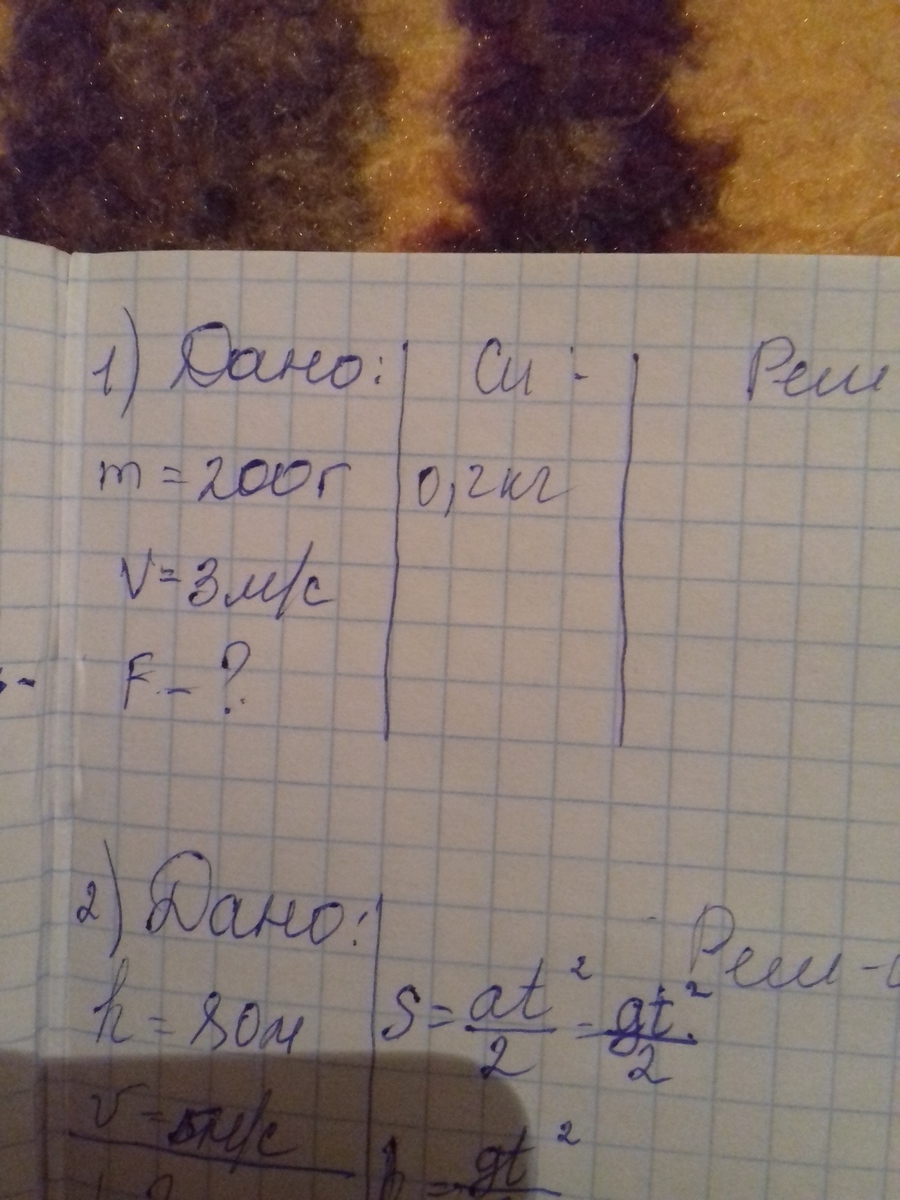 1) Дано: Си: Реш
m = 200г 0,2 кг
V = 3 м/с
F - ?
2) Дано: Реш-
h = 80м S = at²/2 = gt²/2
v = м/с
h = gt²